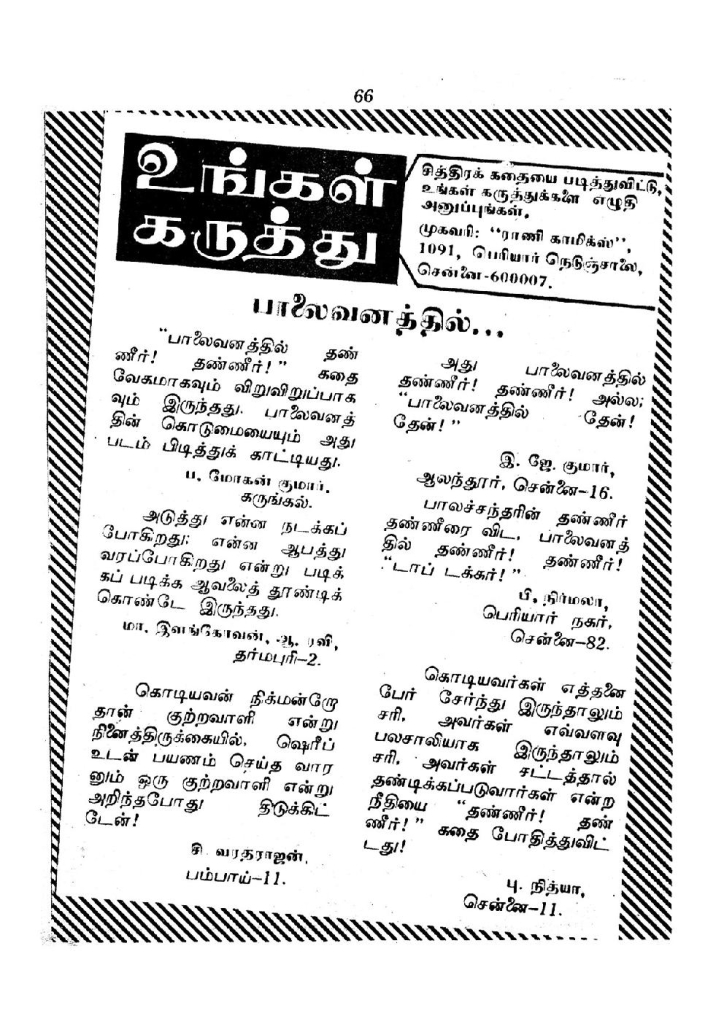 66
உங்கள்
கருத்து
சித்திரக் கதையை படித்துவிட்டு,
உங்கள் கருத்துக்களை எழுதி
அனுப்புங்கள்.
முகவரி: "ராணி காமிக்ஸ்",
1091, பெரியார் நெடுஞ்சாலை,
சென்னை-600007.
பாலைவனத்தில்...
"பாலைவனத்தில் தண்
ணீர்! தண்ணீர்!" கதை
வேகமாகவும் விறுவிறுப்பாக
வும் இருந்தது. பாலைவனத்
தின் கொடுமையையும் அது
படம் பிடித்துக் காட்டியது.
ப. மோகன் குமார்.
கருங்கல்.
அடுத்து என்ன நடக்கப்
போகிறது; என்ன ஆபத்து
வரப்போகிறது என்று படிக்
கப் படிக்க ஆவலைத் தூண்டிக்
கொண்டே இருந்தது.
மா. இளங்கோவன், ஆ. ரவி,
தர்மபுரி-2.
கொடியவன் நிக்மன்றே
தான் குற்றவாளி என்று
நினைத்திருக்கையில், ஷெரீப்
உடன் பயணம் செய்த வார
னும் ஒரு குற்றவாளி என்று
அறிந்தபோது திடுக்கிட்
டேன்!
சி. வரதராஜன்,
பம்பாய்-11.
அது பாலைவனத்தில்
தண்ணீர்! தண்ணீர்! அல்ல;
"பாலைவனத்தில் தேன்!
தேன்!"
இ. ஜே. குமார்,
ஆலந்தூர், சென்னை-16.
பாலச்சந்தரின் தண்ணீர்
தண்ணீரை விட, பாலைவனத்
தில் தண்ணீர்! தண்ணீர்!
"டாப் டக்கர்!"
பி. நிர்மலா,
பெரியார் நகர்,
சென்னை-82.
கொடியவர்கள் எத்தனை
பேர் சேர்ந்து இருந்தாலும்
சரி, அவர்கள் எவ்வளவு
பலசாலியாக இருந்தாலும்
சரி, அவர்கள் சட்டத்தால்
தண்டிக்கப்படுவார்கள் என்ற
நீதியை "தண்ணீர்! தண்
ணீர்!" கதை போதித்துவிட்
டது!
பு. நித்யா,
சென்னை-11.